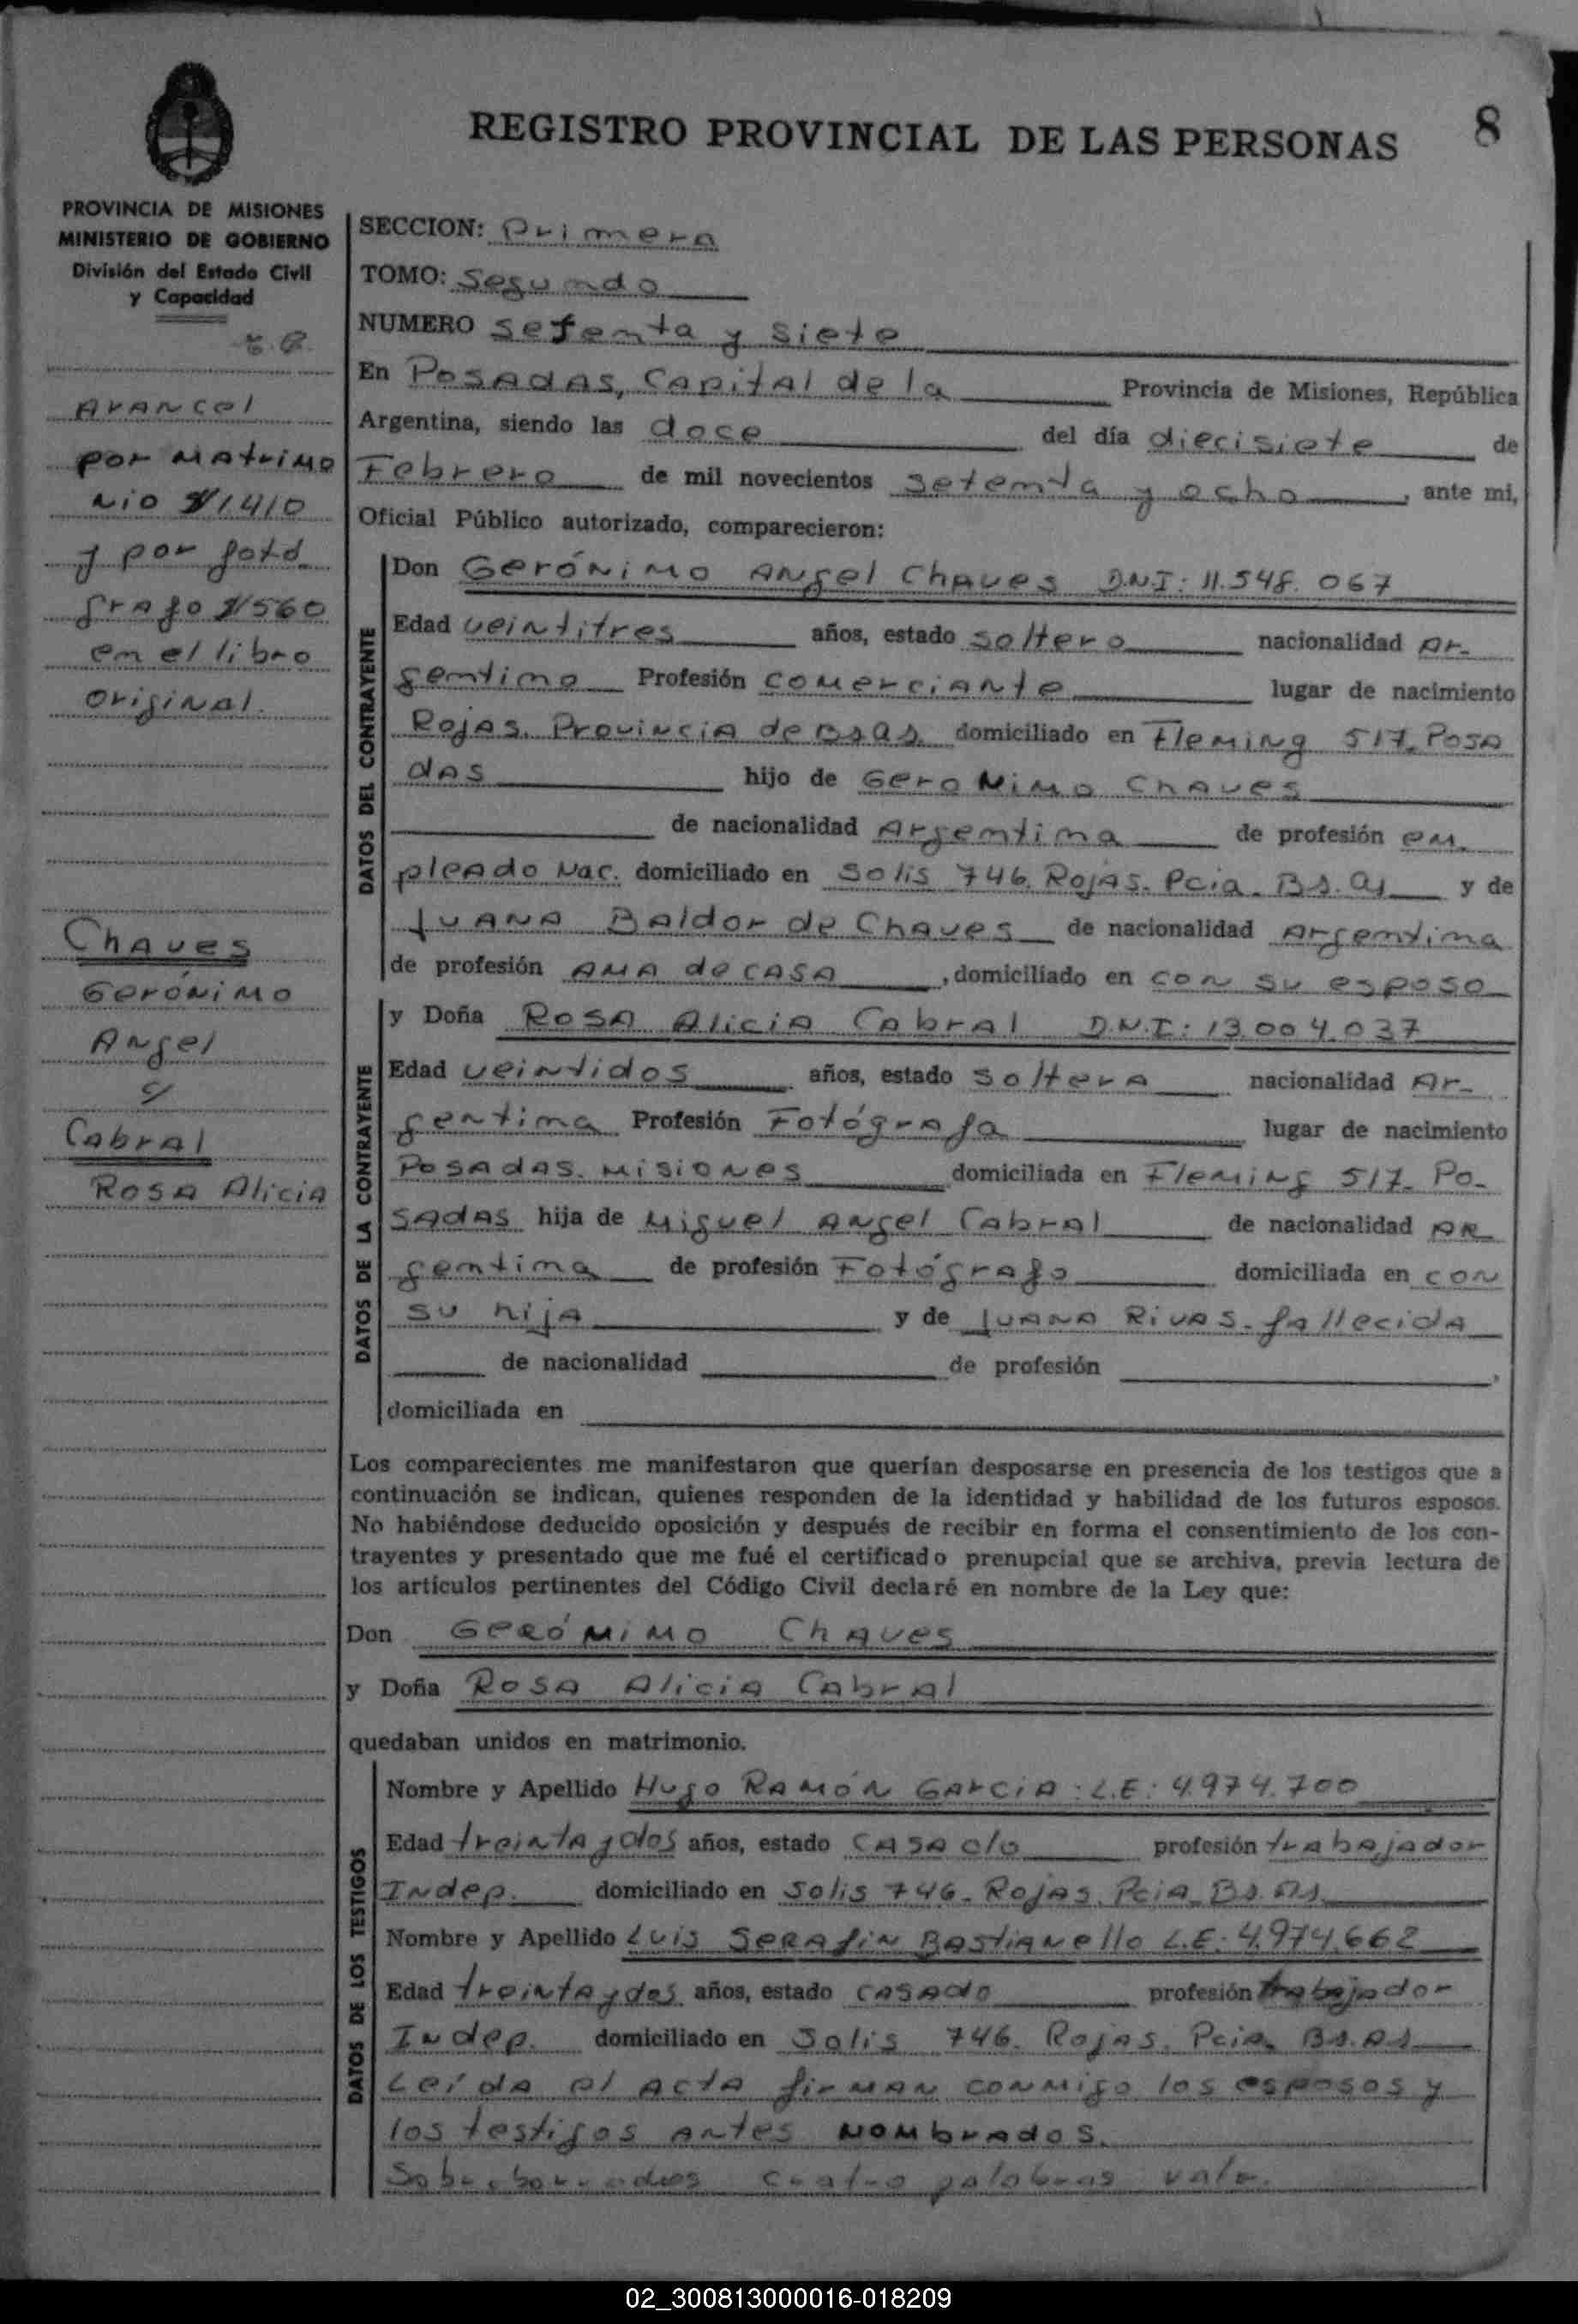 REGISTRO PROVINCIAL DE LAS PERSONAS 8
PROVINCIA DE MISIONES
MINISTERIO DE GOBIERNO
División del Estado Civil
y Capacidad
Arancel
por matrimo
nio $1410
y por fotó
grafo $560
en el libro
original.
Chaves
Gerónimo
Angel
y
Cabral
Rosa Alicia
SECCION: Primera
TOMO: Segundo
NUMERO setenta y siete
En Posadas, Capital de la Provincia de Misiones, República
Argentina, siendo las doce del día diecisiete de
Febrero de mil novecientos setenta y ocho, ante mi,
Oficial Público autorizado, comparecieron:
DATOS DEL CONTRAYENTE
Don Gerónimo Angel Chaves D.N.I: 11.548.067
Edad veintitres años, estado soltero nacionalidad Ar-
gentino Profesión comerciante lugar de nacimiento
Rojas. Provincia de Bs.as. domiciliado en Fleming 517. Posa
das hijo de Geronimo Chaves
de nacionalidad Argentina de profesión em.
pleado Nac. domiciliado en Solis 746. Rojas. Pcia. Bs. as y de
Juana Baldor de Chaves de nacionalidad Argentina
de profesión ama de casa, domiciliado en con su esposo
DATOS DE LA CONTRAYENTE
y Doña Rosa Alicia Cabral D.N.I: 13.004.037
Edad veintidos años, estado soltera nacionalidad Ar-
gentina Profesión Fotógrafa lugar de nacimiento
Posadas. Misiones domiciliada en Fleming 517. Po-
sadas hija de Miguel Angel Cabral de nacionalidad Ar
gentina de profesión Fotógrafo domiciliada en con
su hija y de Juana Rivas. fallecida
de nacionalidad de profesión ,
domiciliada en
Los comparecientes me manifestaron que querían desposarse en presencia de los testigos que a
continuación se indican, quienes responden de la identidad y habilidad de los futuros esposos.
No habiéndose deducido oposición y después de recibir en forma el consentimiento de los con-
trayentes y presentado que me fué el certificado prenupcial que se archiva, previa lectura de
los artículos pertinentes del Código Civil declaré en nombre de la Ley que:
Don Gerónimo Chaves
y Doña Rosa Alicia Cabral
quedaban unidos en matrimonio.
DATOS DE LOS TESTIGOS
Nombre y Apellido Hugo Ramón Garcia: L.E: 4.974.700
Edad treinta y dos años, estado casado profesión trabajador
Indep. domiciliado en Solis 746. Rojas. Pcia. Bs. As
Nombre y Apellido Luis Serafin Bastianello L.E: 4.974.662
Edad treinta y dos años, estado casado profesión trabajador
Indep. domiciliado en Solis 746. Rojas. Pcia. Bs. As
Leida el acta firman conmigo los esposos y
los testigos antes nombrados.
Sobreborrados cuatro palabras vale.
02_300813000016-018209